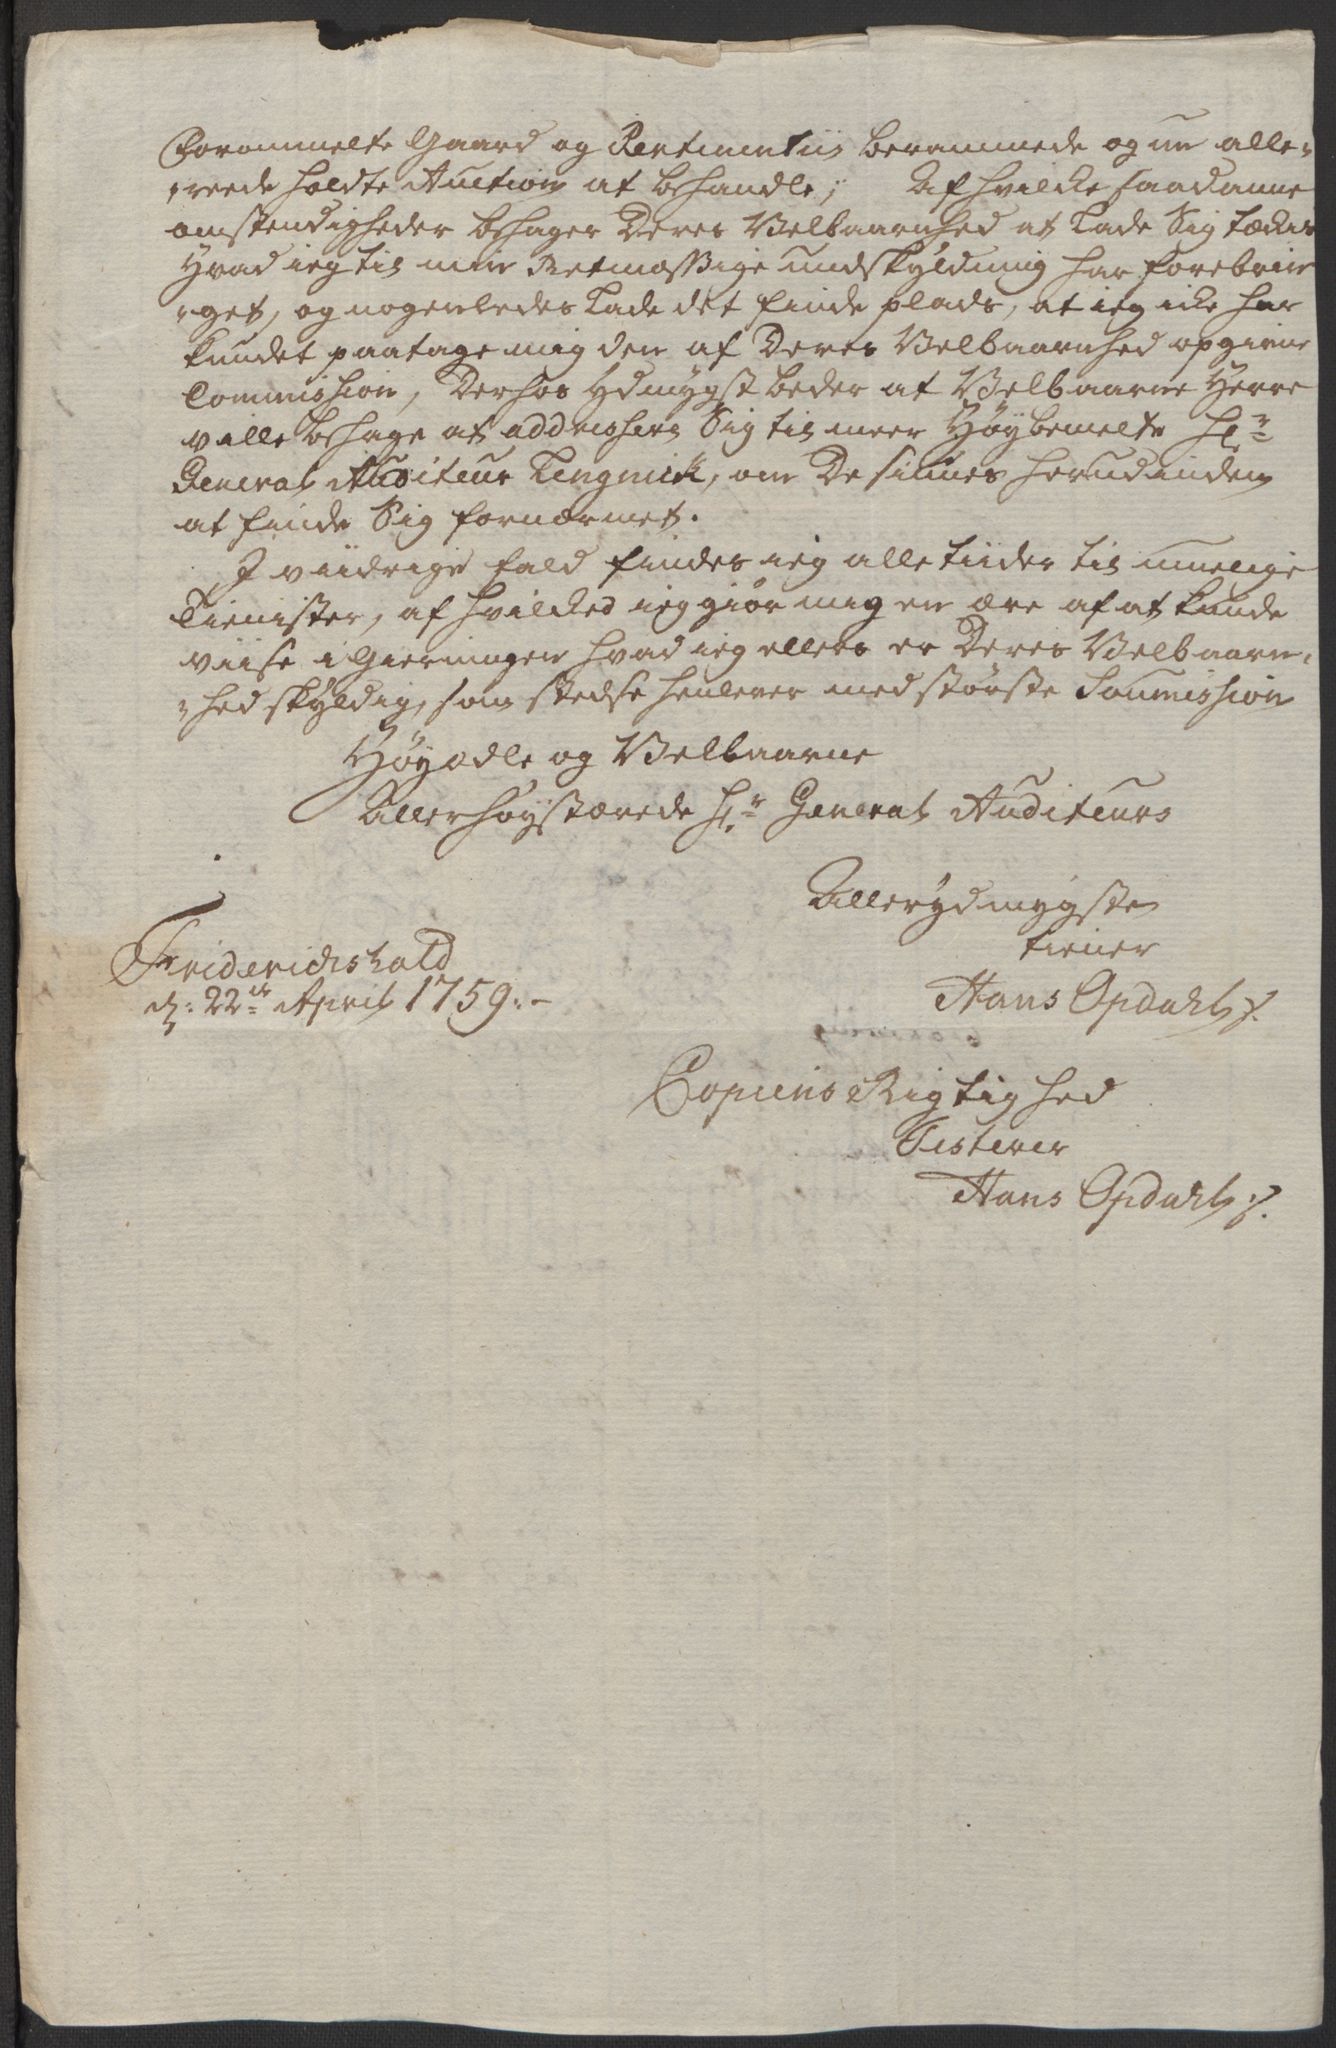 Forommelte Gaard og Pertinentiis berammede og nu alle-
-reede holdte Auction at behandle; Af hvilcke saadanne
omstendigheder behager Deres Velbaarnhed at Lade Sig tæckes
Hvad ieg til min Retmæssige undskyldning har forebrin
-get, og nogenledes Lade det finde plads, at ieg icke har
kundet paatage mig den af Deres Velbaarnhed opgivne
Commission, Derhos ydmygst beder at Velbaarne Herre
ville behage at addressere Sig til meer Høybemelte Hr.
General Auditeur Tengnick, om De siunes herudinden
at finde Sig fornærmet.
I viidrige fald findes ieg alletiider til muelige
Tienister, af hvilcked ieg giør mig en ære af at kunde
viise i Gierningen hvad ieg ellers er Deres Velbaarn-
-hed skyldig, som stedse henlever med største Soumission
Høyædle og Velbaarne
Allerhøystærede Hr. General Auditeurs
Allerydmygste
tiener
Friderichshald
d: 22de April 1759.-
Hans Opdahl
Copiens Rigtighed
Testerer
Hans Opdahl